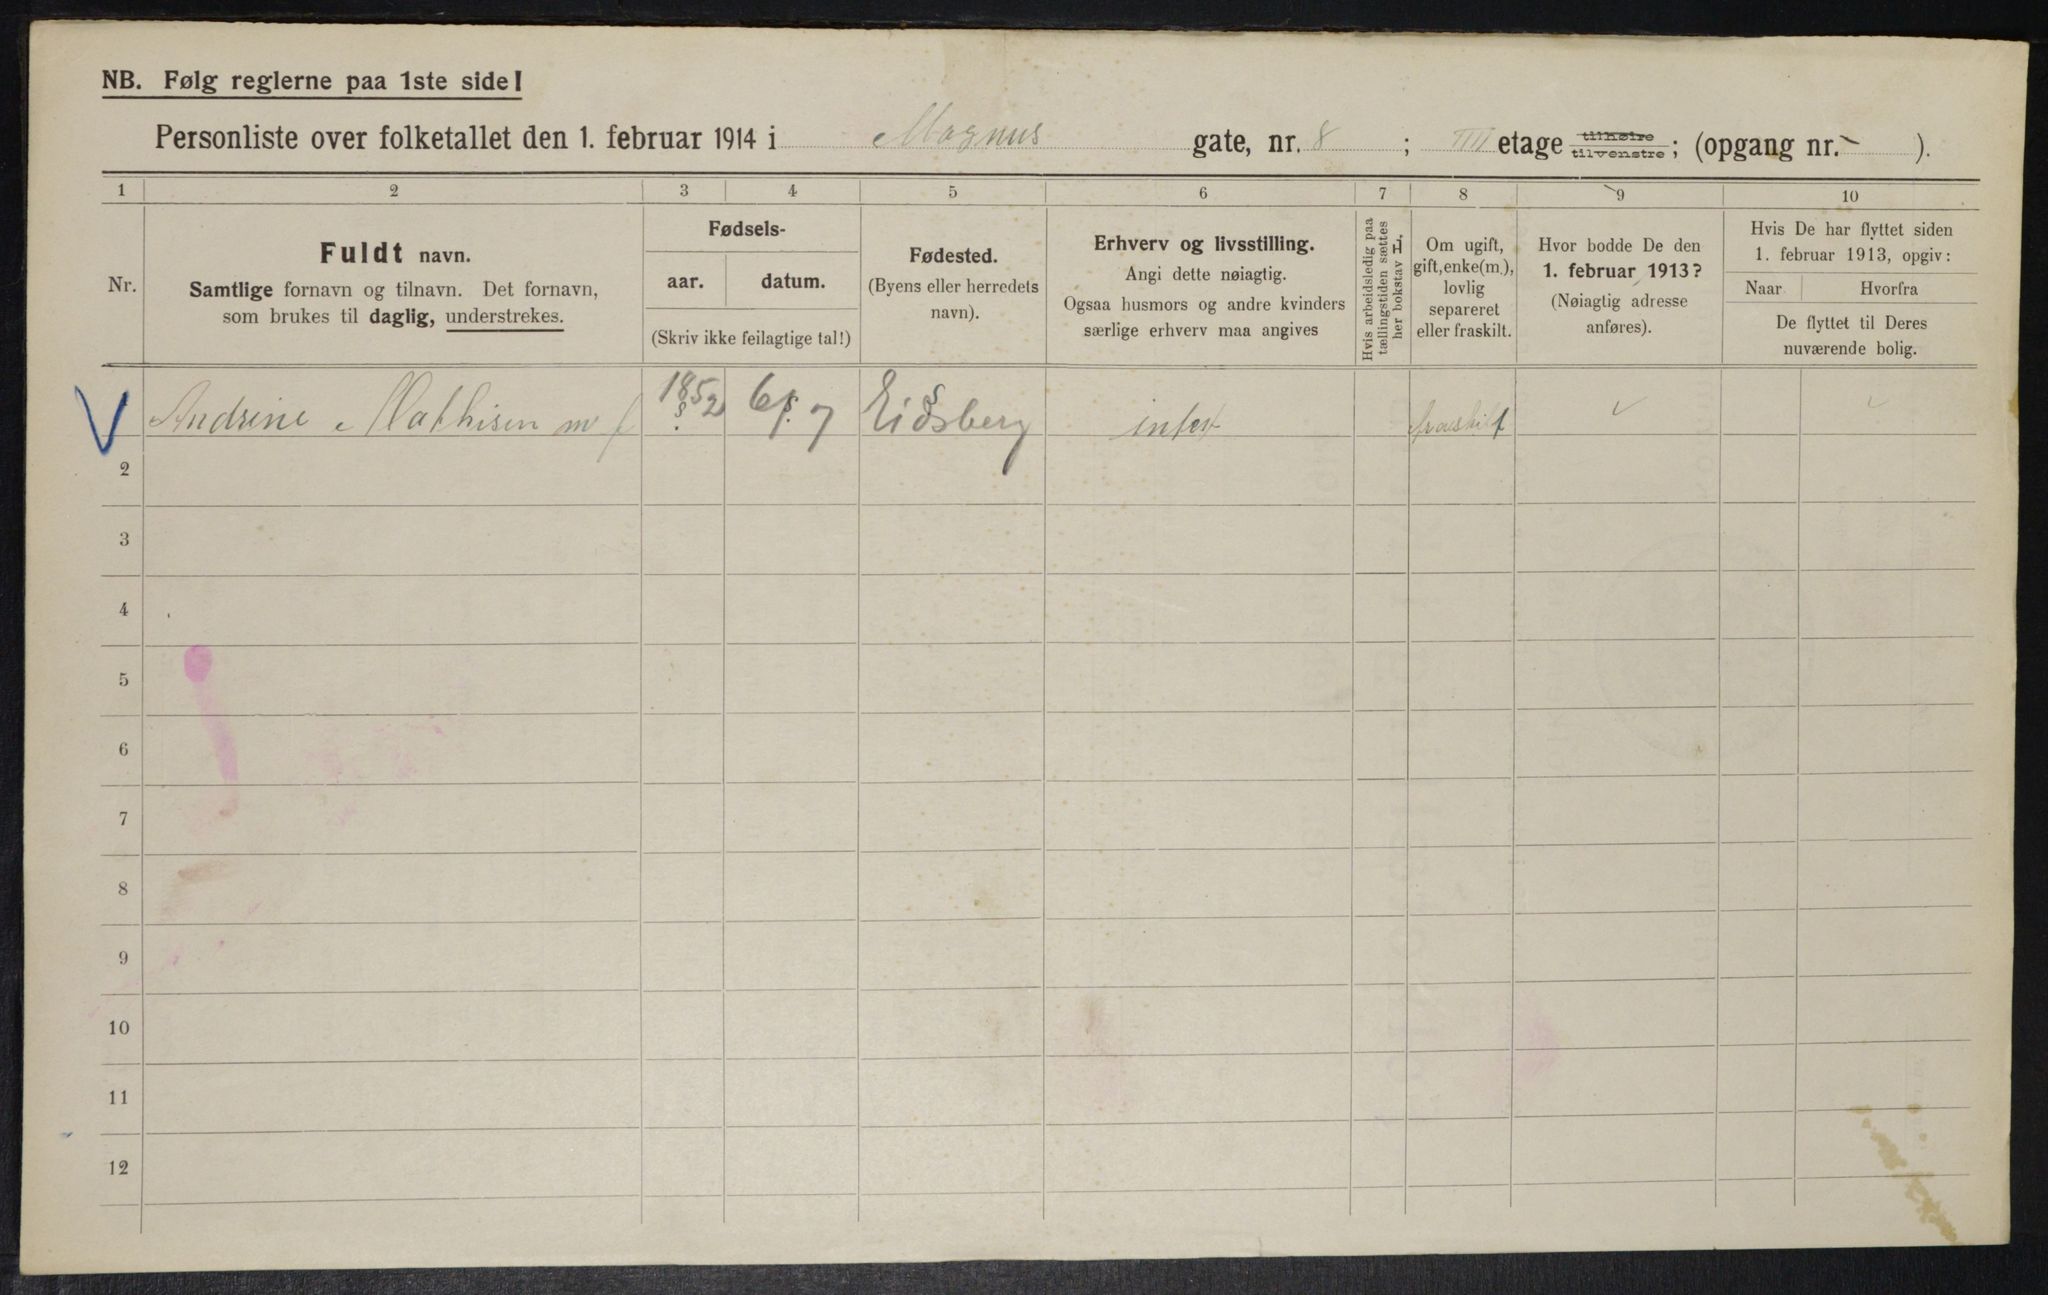 NB. Følg reglerne paa 1ste side!
Personliste over folketallet den 1. februar 1914 i Magnus gate, nr. 8 ; IIII etage tilhøire tilvenstre; (opgang nr. - ).
1 2 3 4 5 6 7 8 9 10
Nr.
Fuldt navn.
Samtlige fornavn og tilnavn. Det fornavn,
som brukes til daglig, understrekes.
Fødsels-
aar. datum.
(Skriv ikke feilagtige tal!)
Fødested.
(Byens eller herredets
navn).
Erhverv og livsstilling.
Angi dette nøiagtig.
Ogsaa husmors og andre kvinders
særlige erhverv maa angives
Hvis arbeidsledig paa
tællingstiden sættes
her bokstav L.
Om ugift,
gift, enke(m.),
lovlig
separeret
eller fraskilt.
Hvor bodde De den
1. februar 1913?
(Nøiagtig adresse
anføres).
Hvis De har flyttet siden
1. februar 1913, opgiv:
Naar Hvorfra
De flyttet til Deres
nuværende bolig.
Andrine Mathisen 1852 6/7 Eidsberg intet fraskilt
2
3
4
5
6
7
8
9
10
11
12